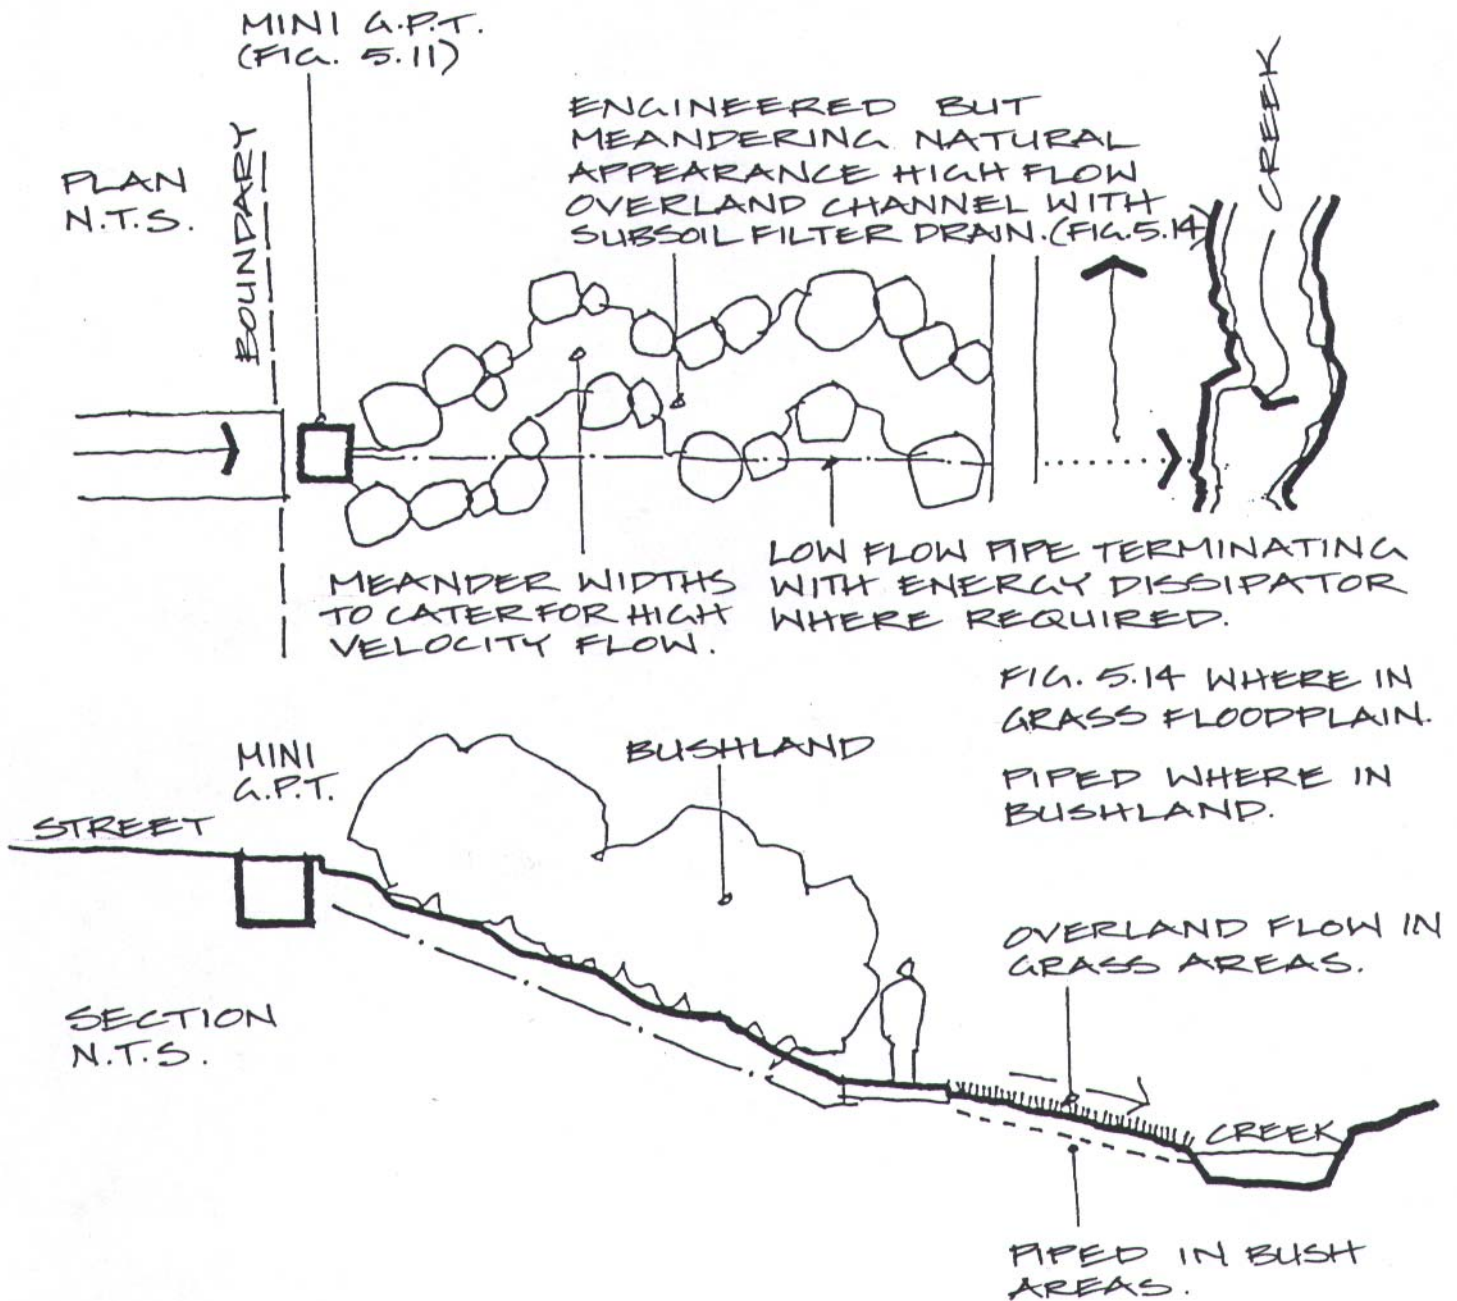 MINI G.P.T.
(FIG. 5.11)
PLAN
N.T.S.
BOUNDARY
ENGINEERED BUT
MEANDERING NATURAL
APPEARANCE HIGH FLOW
OVERLAND CHANNEL WITH
SUBSOIL FILTER DRAIN. (FIG. 5.14)
CREEK
MEANDER WIDTHS
TO CATER FOR HIGH
VELOCITY FLOW.
LOW FLOW PIPE TERMINATING
WITH ENERGY DISSIPATOR
WHERE REQUIRED.
FIG. 5.14 WHERE IN
GRASS FLOODPLAIN.
PIPED WHERE IN
BUSHLAND.
MINI
G.P.T.
STREET
BUSHLAND
SECTION
N.T.S.
OVERLAND FLOW IN
GRASS AREAS.
CREEK
PIPED IN BUSH
AREAS.